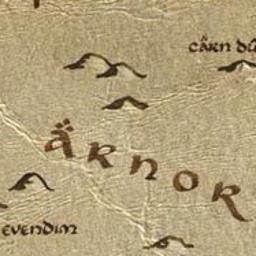 CÂRN DÛ
ÄRNOR
EVENDIM